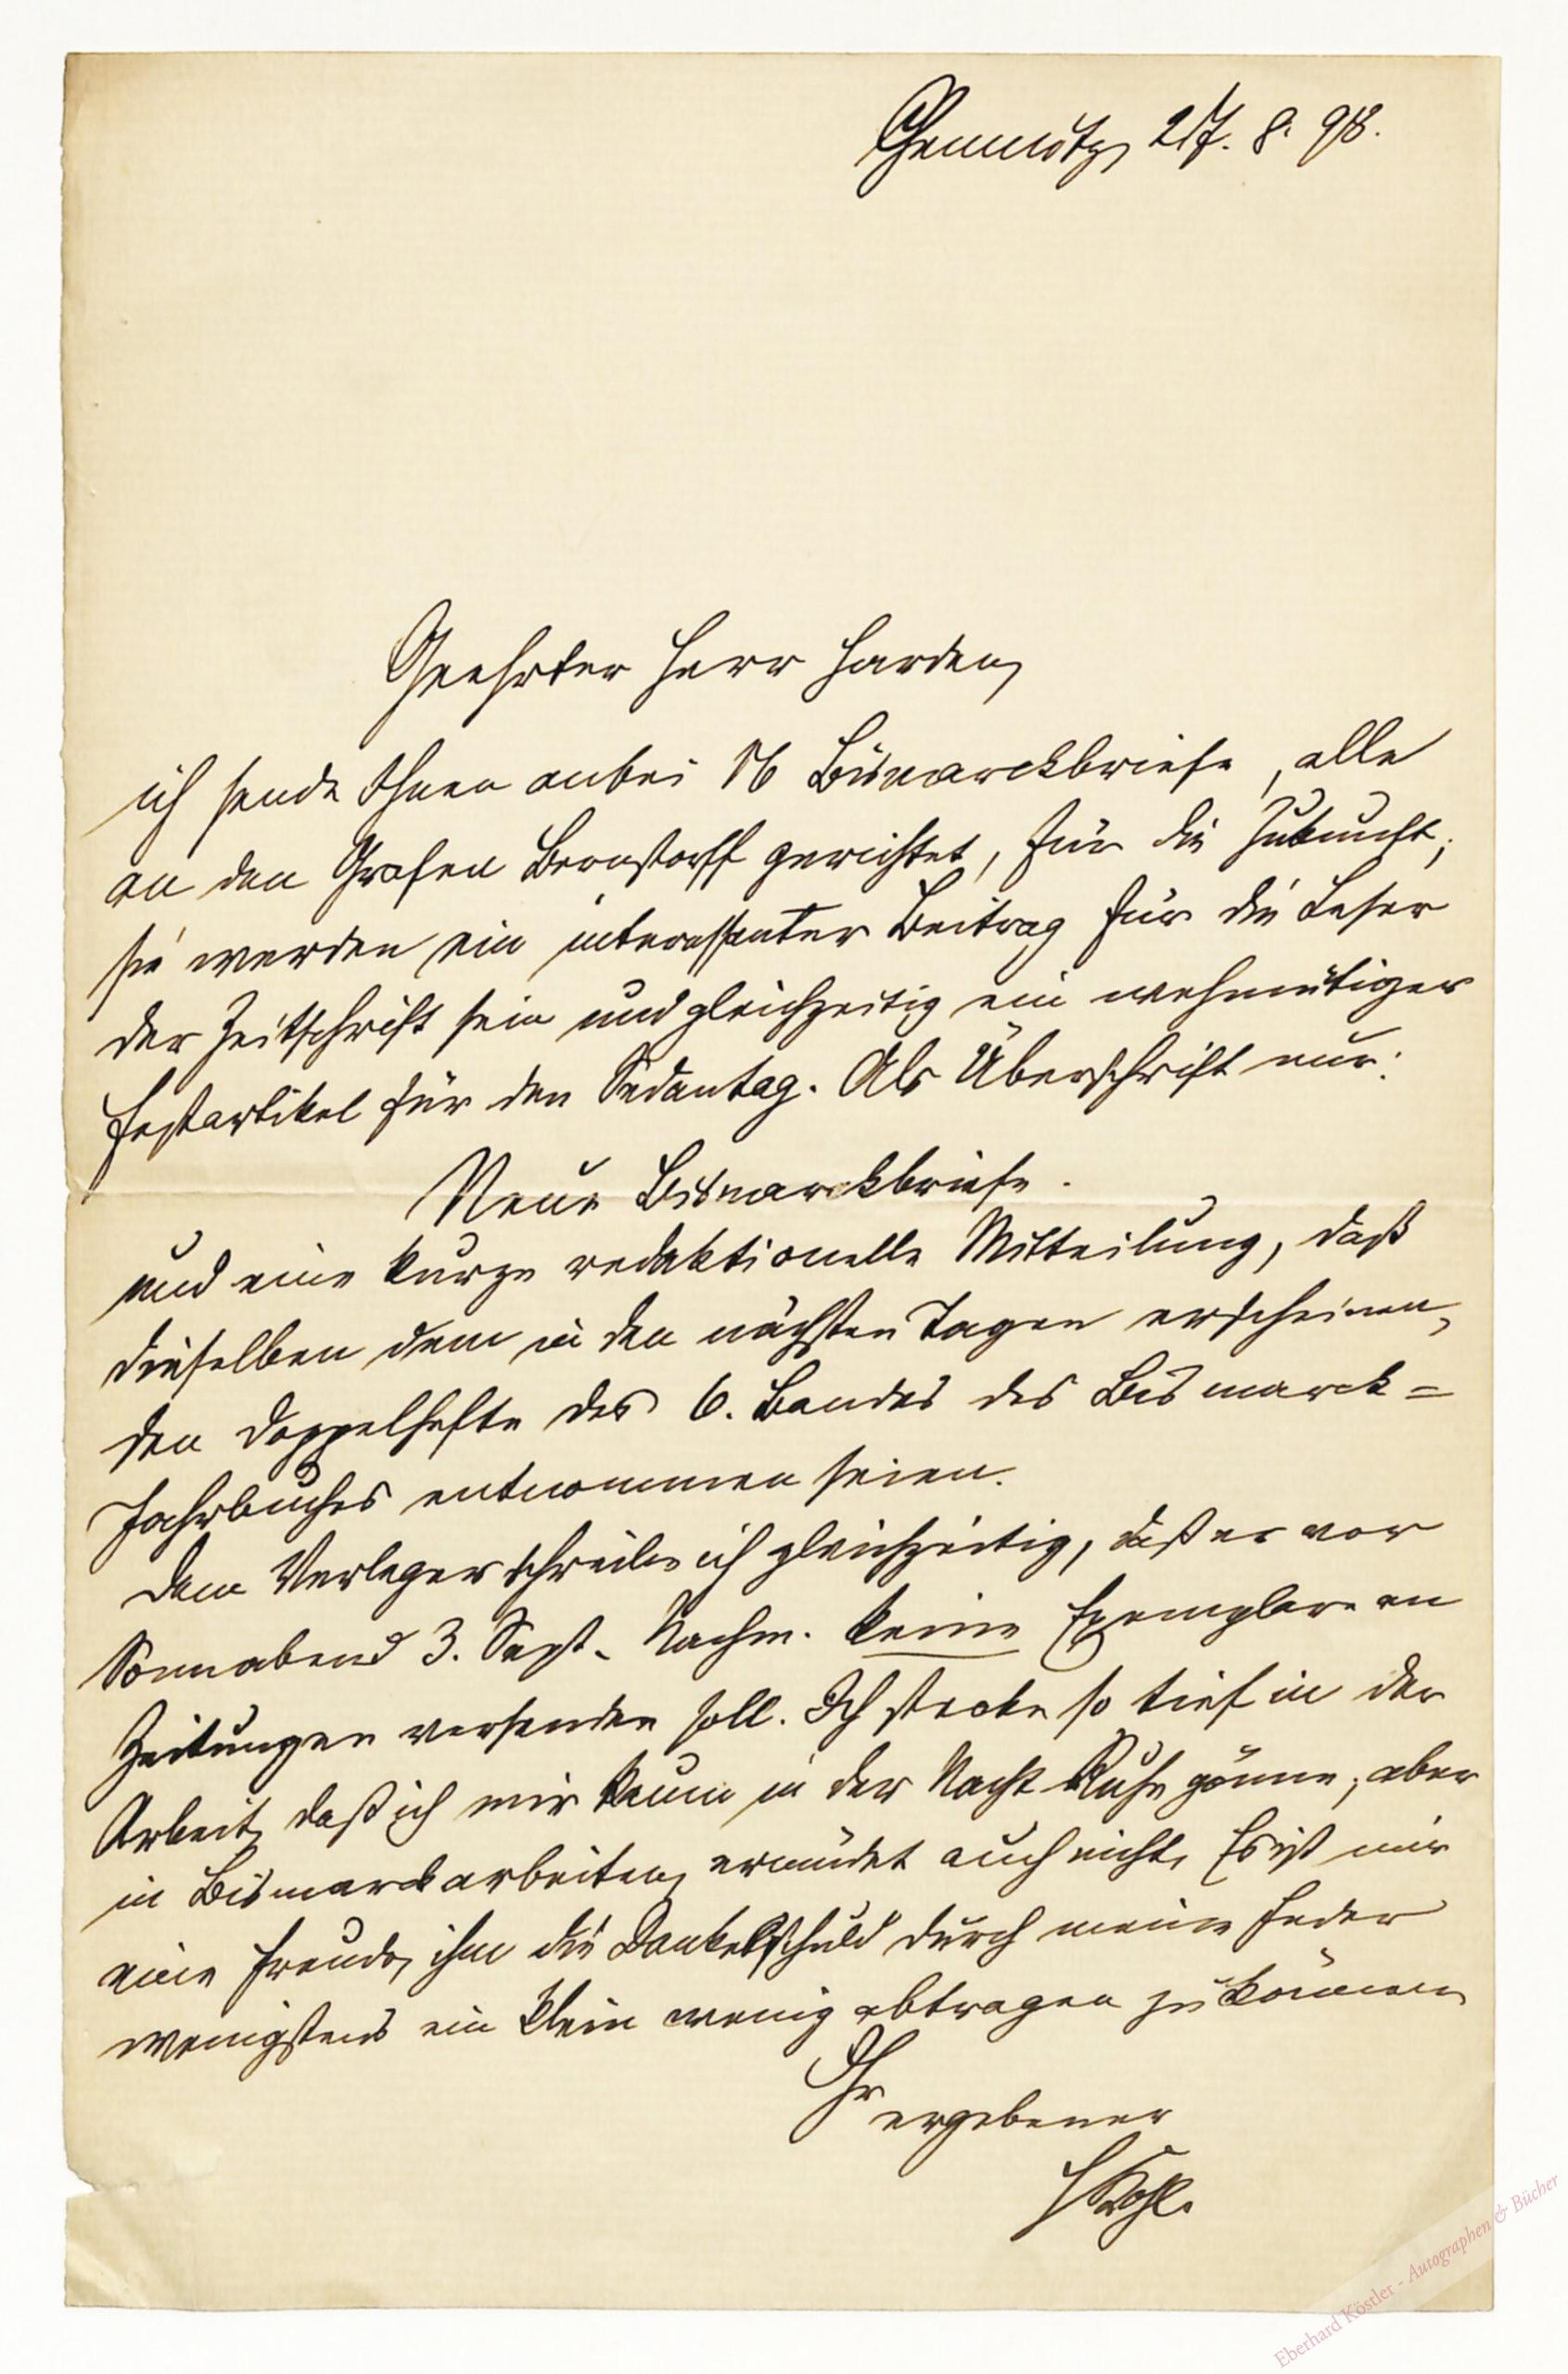 Chemnitz, 27. 8. 98.
Geehrter Herr Harden,
ich sende Ihnen anbei 16 Bismarckbriefe, alle
an den Grafen Bernstorff gerichtet, für die Zukunft;
sie werden ein interessanter Beitrag für die Leser
der Zeitschrift sein und gleichzeitig ein wehmütiger
Festartikel für den Sedantag. Als Überschrift nur:
Neue Bismarckbriefe.
und eine kurze redaktionelle Mitteilung, daß
dieselben dem in den nächsten Tagen erscheinen-
den Doppelhefte des 6. Bandes des Bismarck=
Jahrbuches entnommen seien.
Dem Verleger schreibe ich gleichzeitig, daß er vor
Sonnabend 3. Sept. Nachm. keine Exemplare an
Zeitungen versenden soll. Ich stecke so tief in der
Arbeit, daß ich mir kaum in der Nacht Ruhe gönne; aber
in Bismarckarbeiten ermüdet auch nicht. Es ist mir
eine Freude, ihm die Dankesschuld durch meine Feder
wenigstens ein klein wenig abtragen zu können
Ihr
ergebener
HKohl.
Eberhard Köstler - Autographen & Bücher